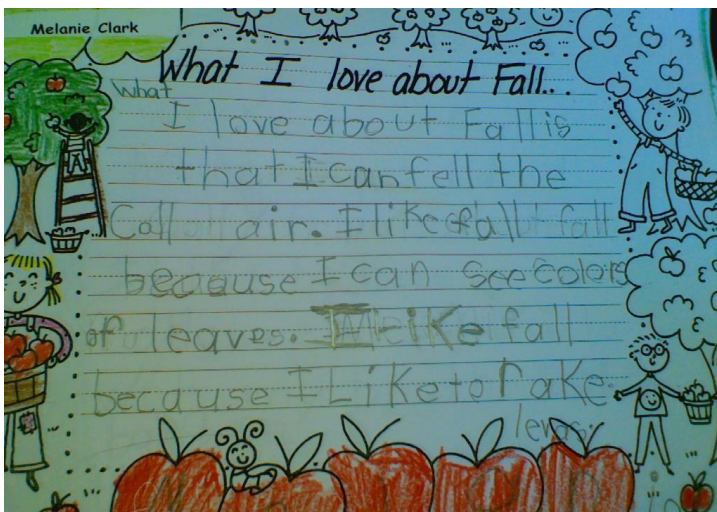 Melanie Clark
What I love about Fall...
What
I love about Fall is
that I can fell the
Call air. I like fall
because I can see colors
of leaves. I like fall
because I Like to rake
levas.